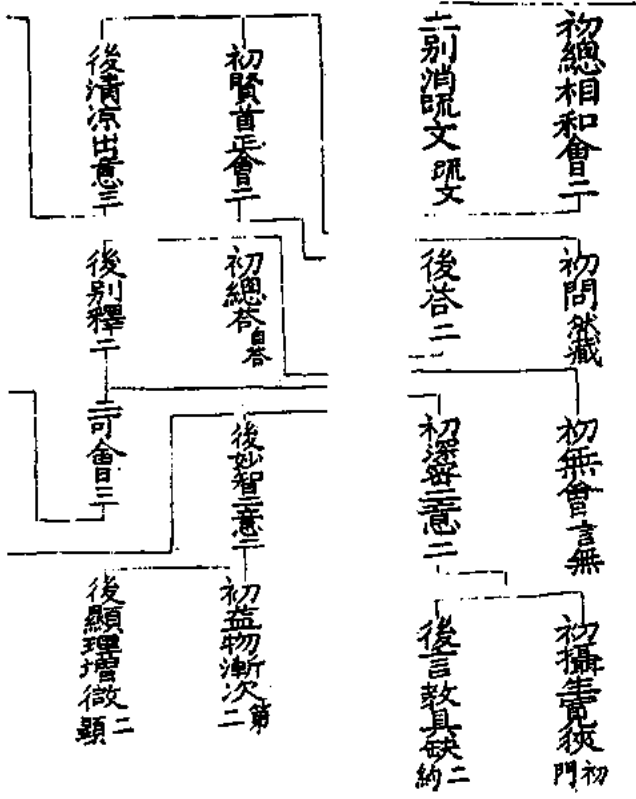 初總相和會二
二別消疏文 疏文
初問 然藏
後答二
初無會 言無
初深密三意二
初攝生寬狹 初門
後言教具缺 二約
初賢首正會二
後清凉出意三
初總答 自答
後別釋二
二可會三
後妙智二意二
初益物漸次二 第
後顯理增微 二顯